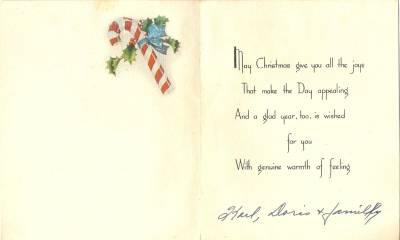 May Christmas give you all the joys
That make the Day appealing
And a glad year, too, is wished
for you
With genuine warmth of feeling
Doris & Family